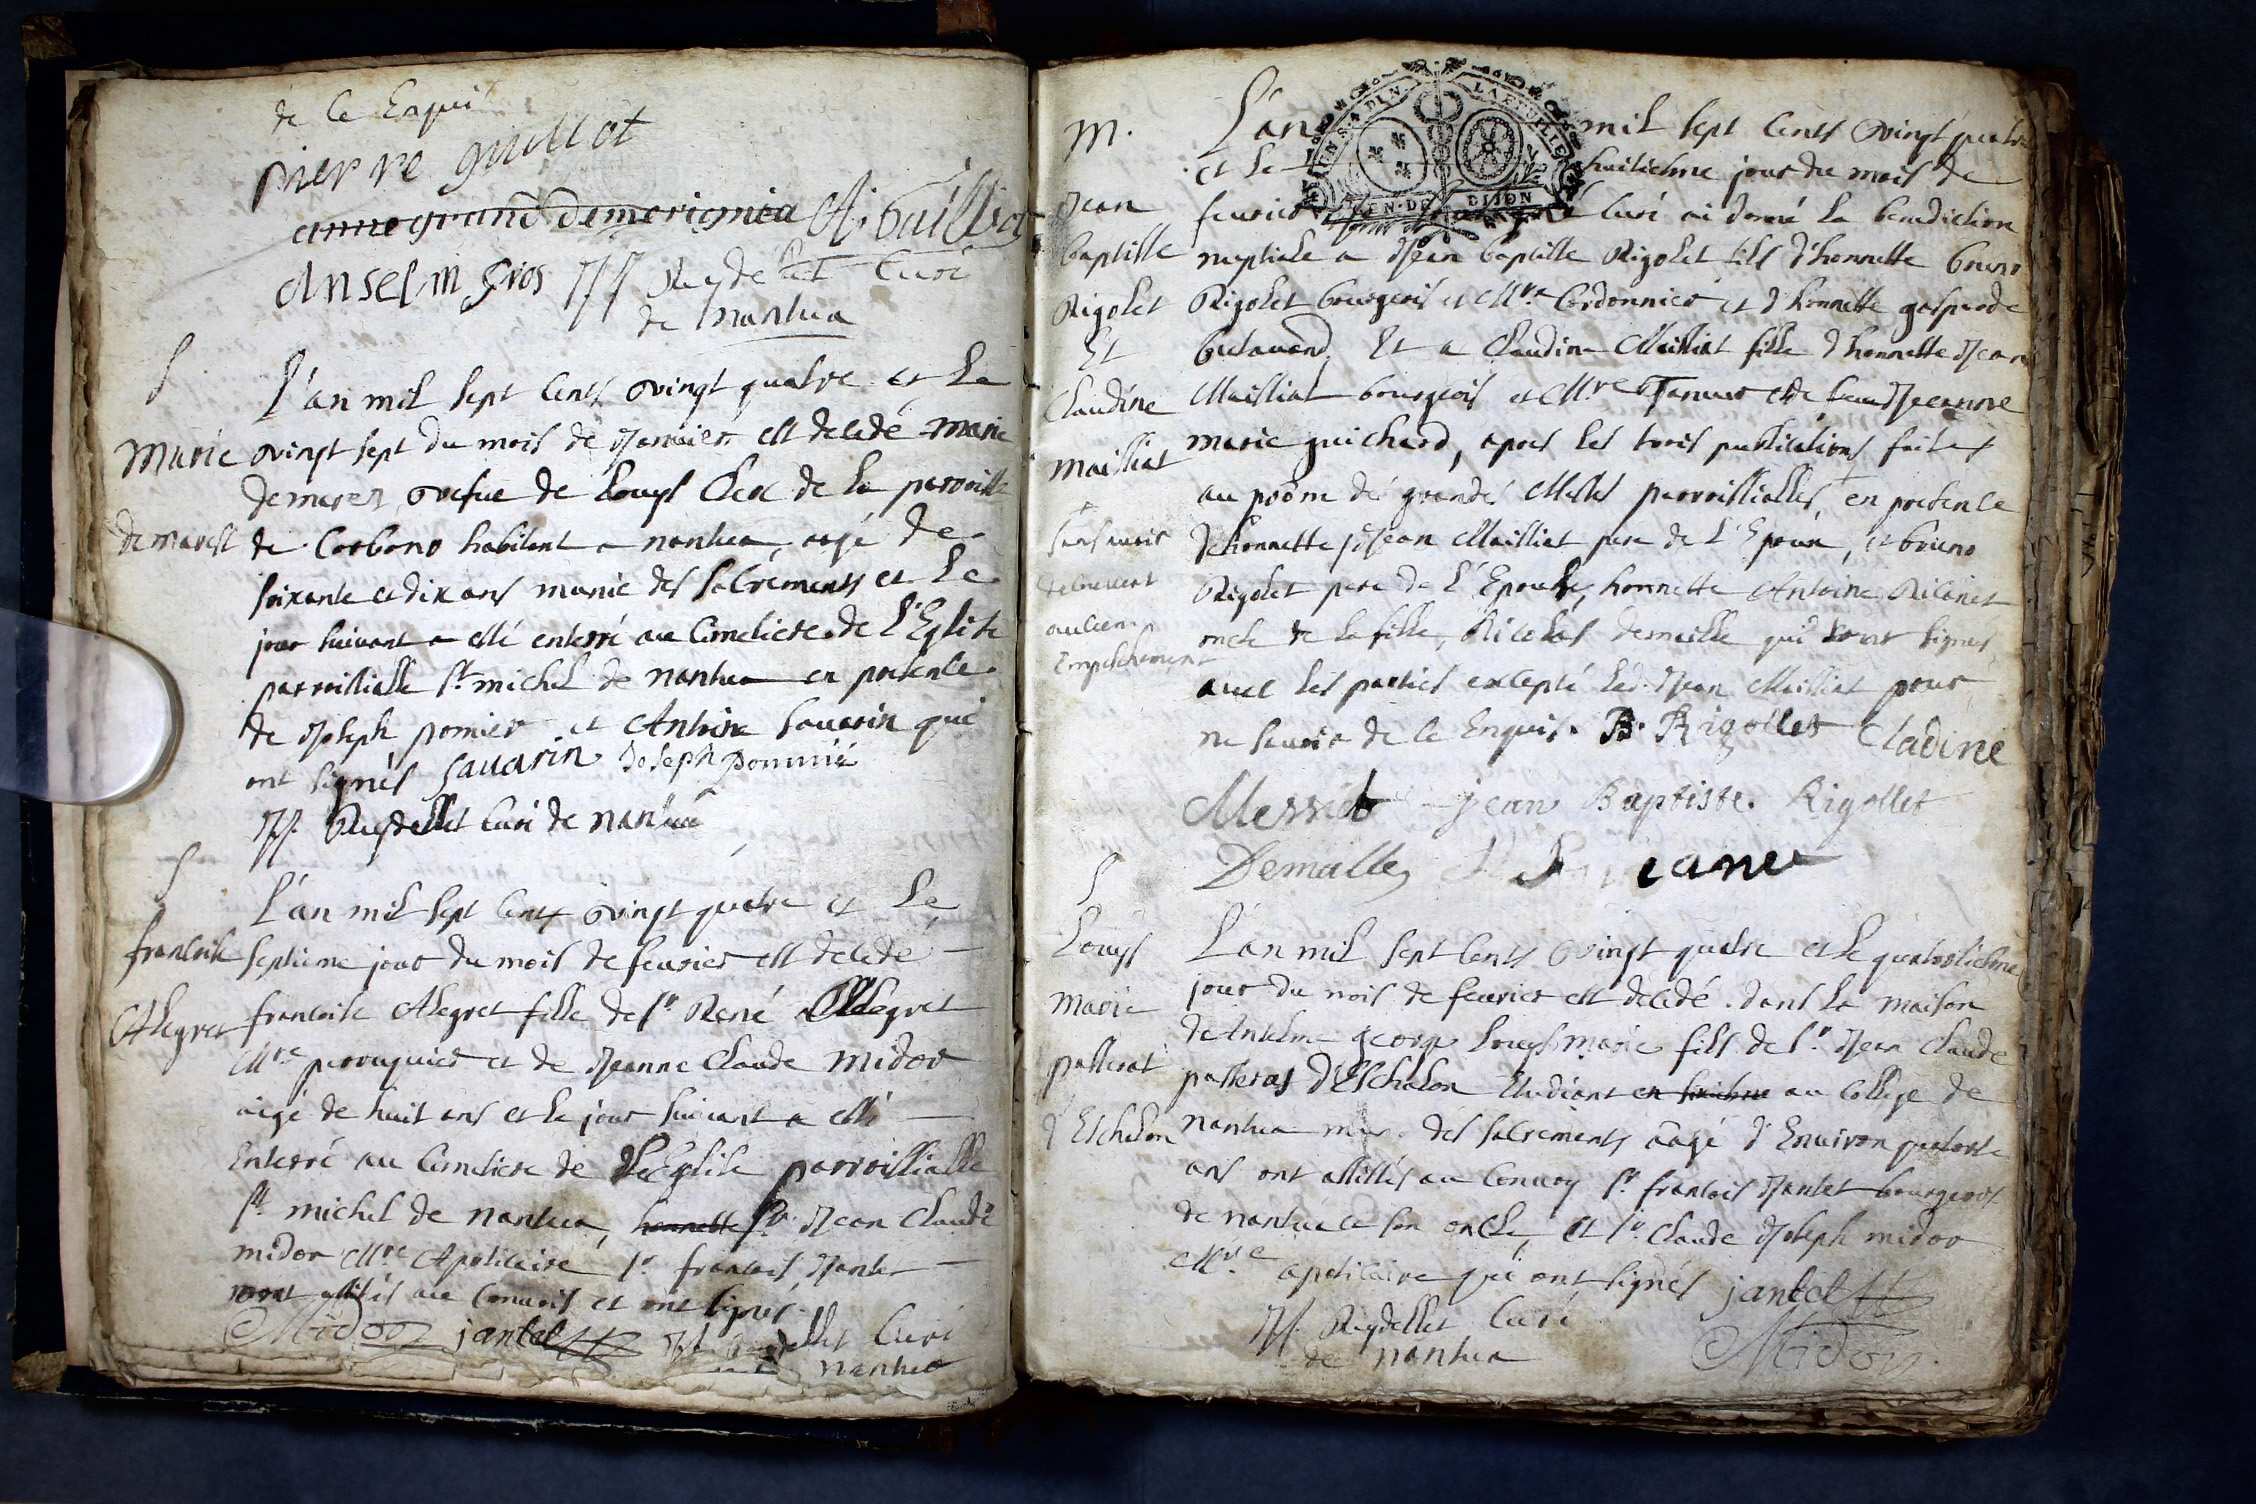 de ce Enquis
pierre guillot
anne grand demerignica A. baillia
Anselm gros J J Reydellet Curé
de nantua
S
L'an mil sept Cents vingt quatre et Le
marie vingt sept du mois de Janvier est decedé marie
demarest vefue de Louys Clerc de la parroisse
demarest de Corbono habitant a nantua, agé de
soixante et dix ans munie des sacrements et Le
jour suivant a esté enterré au Cimetiere de L'Eglise
parroissialle St michel de nantua en presence
de Joseph pomier et Antoine savarin qui
ont signés savarin Joseph pommié
JJ. Reydellet Curé de nantua
S
L'an mil sept Cents vingt quatre et Le
francoise septieme jour du mois de feurier est decedé
Alegret francoise Alegret fille de sr René Allegret
Mre perruquier et de Jeanne Claude midor
aigé de huit ans et le jour suivant a esté
Enterré au Cimetiere de L'Eglise parroissialle
st michel de nantua, honnette sr Jean Claude
midor Mre Apoticaire sr francois Jantet
mont assistés au Convois et ont signés
Midor jantet JJ Reydellet Curé
de nantua
m. L'an mil sept Cents vingt quatre
et Le huitiesme jour du mois de
UN S. 4 DEN. LA FEUILLE
GEN. DE DIJON
Jean feurier Curé ai donné La benediction
baptiste nuptiale a Jean baptiste Rigolet fils d'honnette bruno
Rigolet Rigolet bourgeois et Mre Cordonnier et d'honnette gasparde
Et Et a Claudine Mailliat fille d'honnette Jean
Claudine Mailliat bourgeois et Mre Tanneur et de feue Jeanne
mailliat marie guichard, apres les trois publications faites
au prône des grandes Messes parroissialles, en presence
sans avoir d'honnette Jean Mailliat pere de L'Epouse, et bruno
decouvert Rigolet pere de L'Epoux, honnette Antoine
aucun oncle de la fille, Nicolas demaille qui sont signes
empechement avec les parties excepté led. Jean Mailliat pour
ne scavoir de ce Enquis. B. Rigollet Cladine
Merriet jean Baptiste Rigollet
Demaille
S
Louys L'an mil sept Cents vingt quatre et le quatorsiesme
jour du mois de feurier est decedé dans La maison
marie de Anselme george Louys marie fils de sr Jean Claude
passerat passerat d'Eschalon Etudiant en au College de
d'Eschalon nantua muni des sacrements âagé d'Environ quatorse
ans ont assistés au Convoy sr francois Jantet bourgeois
de nantua son oncle, et sr Claude Joseph midor
Mre apoticaire qui ont signés jantet
JJ. Reydellet Curé
de nantua Midor